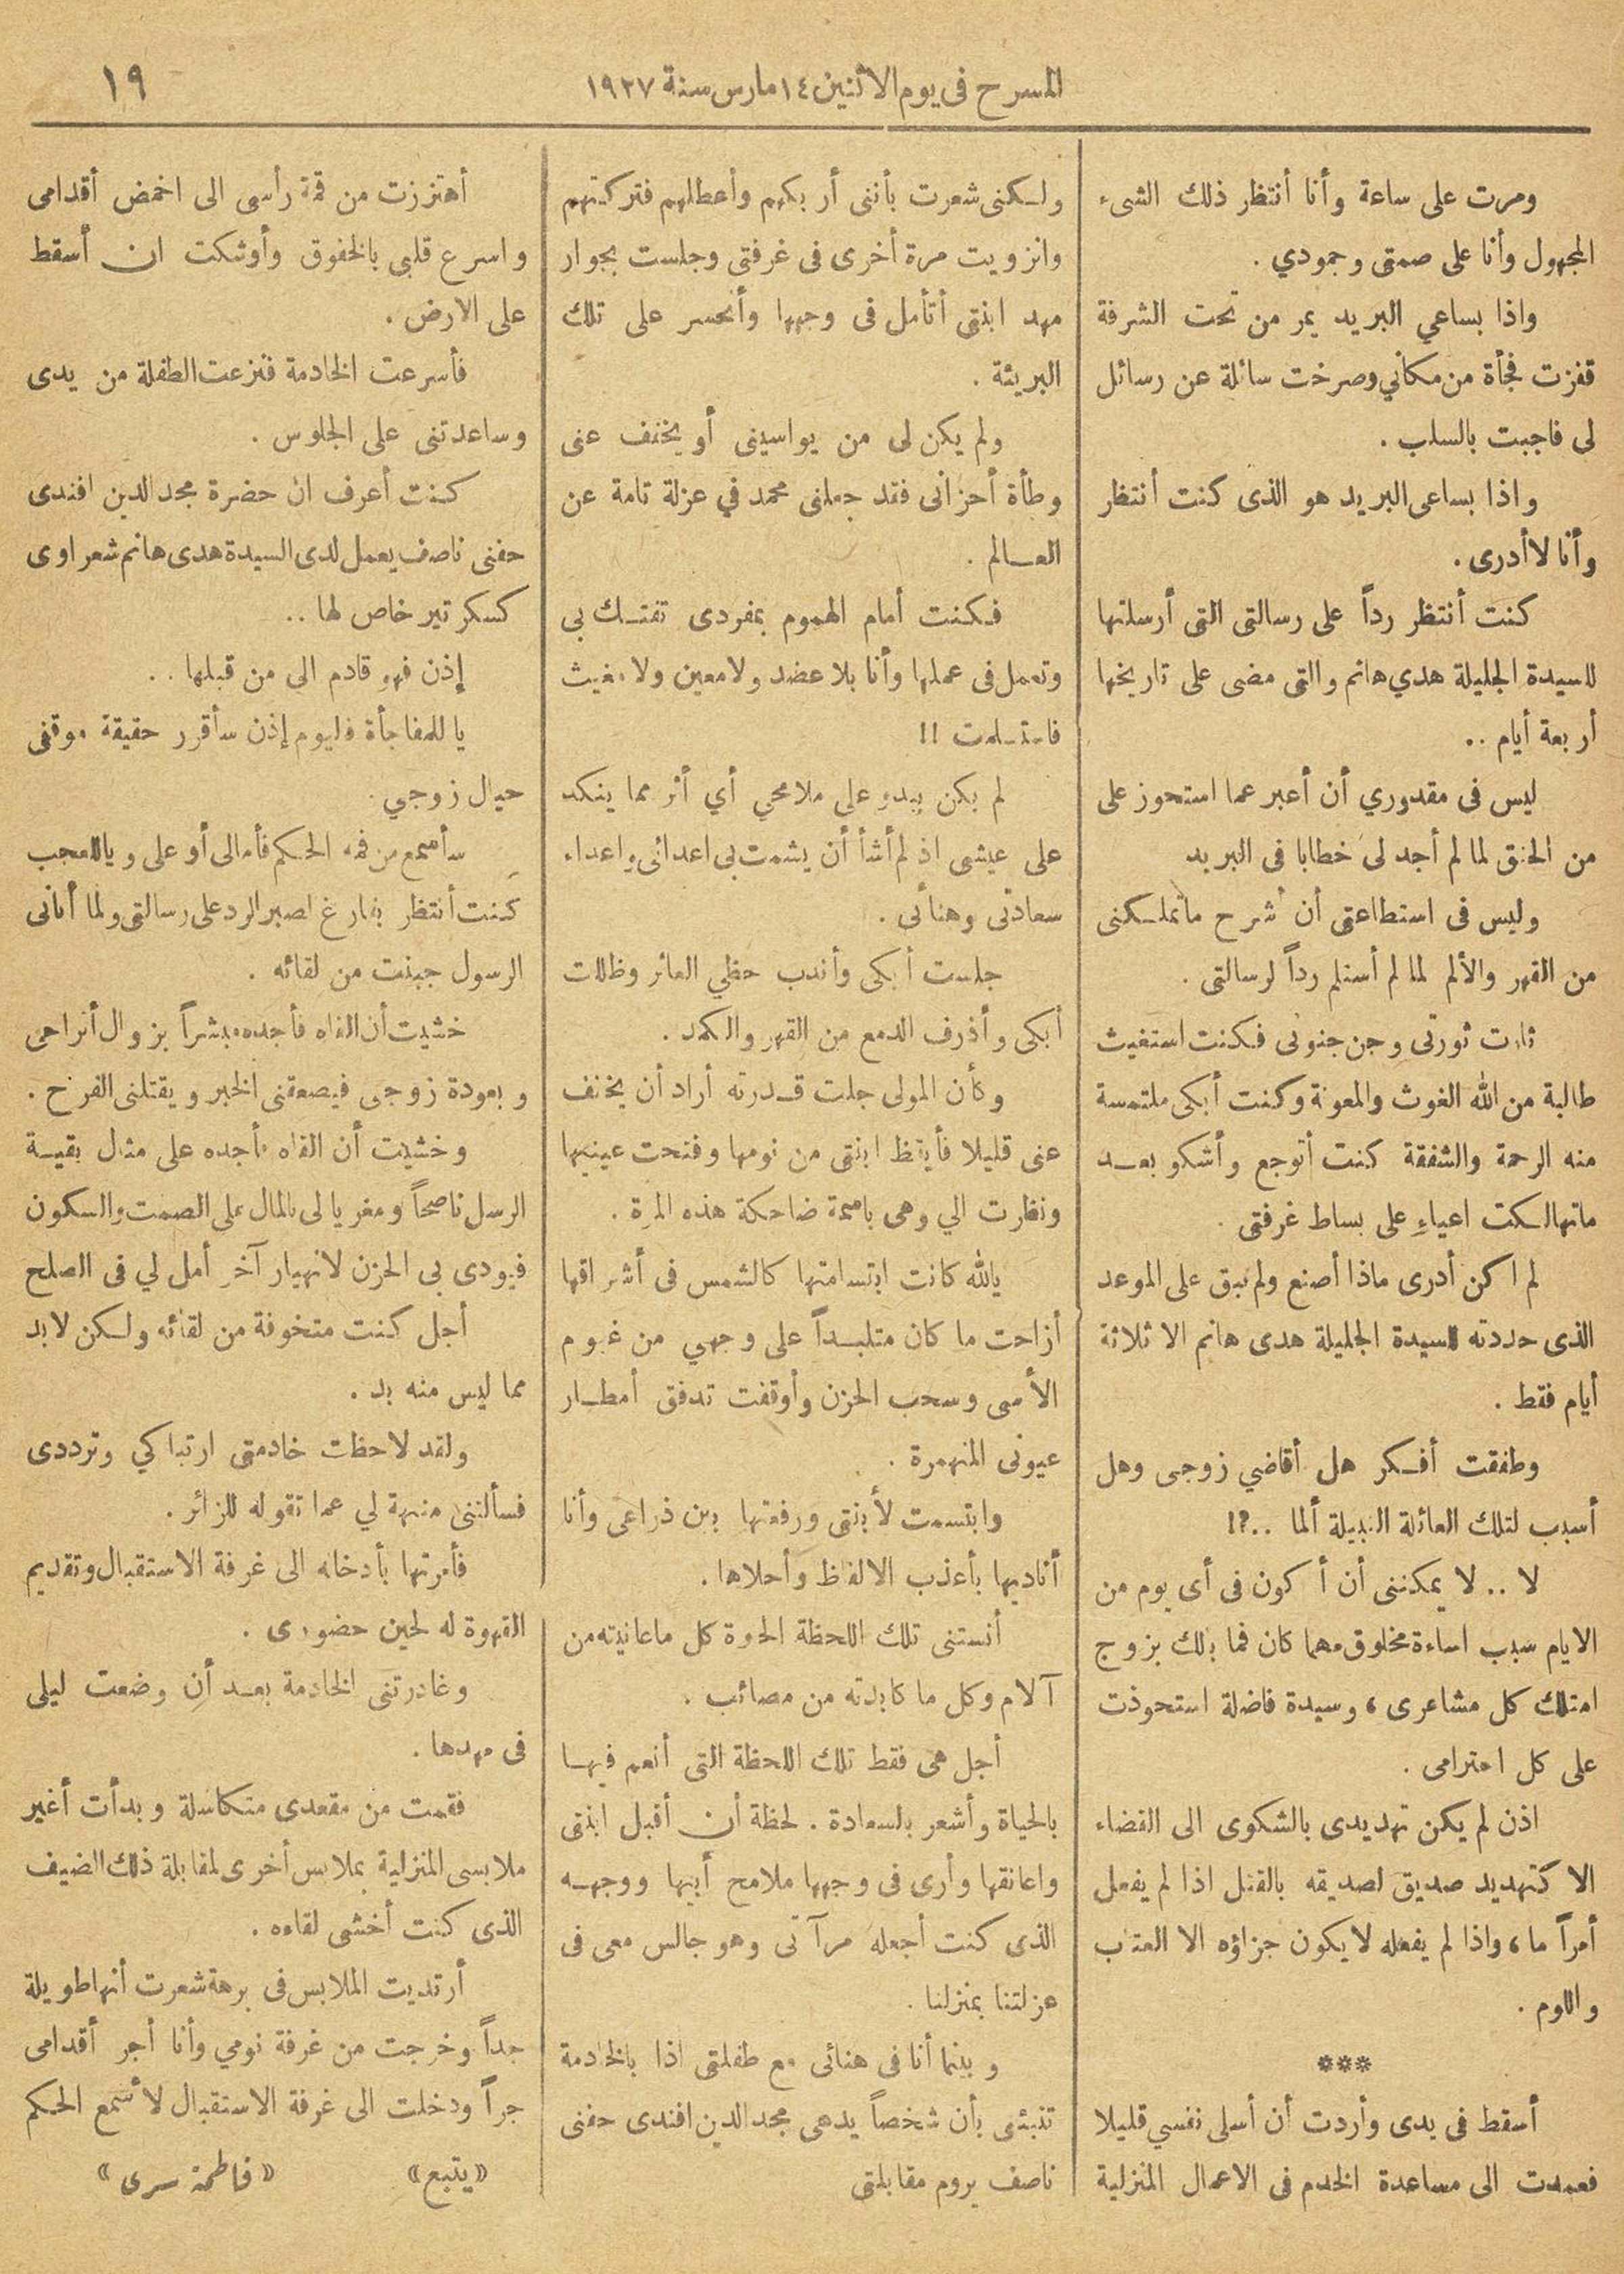 المسرح فى يوم الاثنين ١٤ مارس سنة ١٩٢٧
١٩
ومرت على ساعة وأنا أنتظر ذلك الشىء
المجهول وأنا على صمتى وجمودي .
واذا بساعي البريد يمر من تحت الشرفة
قفزت فجأة من مكاني وصرخت سائلة عن رسائل
لى فاجبت بالسلب .
واذا بساعى البريد هو الذى كنت أنتظر
وأنا لا أدرى .
كنت أنتظر رداً على رسالتى التى أرسلتها
للسيدة الجليلة هدي هانم والتى مضى على تاريخها
أربعة أيام ..
ليس فى مقدوري أن أعبر عما استحوز على
من الحنق لما لم أجد لى خطابا فى البريد
وليس فى استطاعتى أن أشرح ماتملكنى
من القهر والألم لما لم أستلم رداً لرسالتى .
ثارت ثورتى وجن جنونى فكنت استغيث
طالبة من الله الغوث والمعونة وكنت أبكى ملتمسة
منه الرحمة والشفقة كنت أتوجع وأشكو بعد
ماتهالكت اعياءِ على بساط غرفتى .
لم اكن أدرى ماذا أصنع ولم يبق على الموعد
الذى حددته للسيدة الجليلة هدى هانم الا ثلاثة
أيام فقط .
وطفقت أفكر هل أقاضي زوجى وهل
أسبب لتلك العائلة النبيلة ألما ..؟!
لا .. لا يمكننى أن أكون فى أى يوم من
الايام سبب اساءة مخلوق مهما كان فما بالك بزوج
امتلك كل مشاعرى ، وسيدة فاضلة استحوذت
على كل احترامى .
اذن لم يكن تهديدى بالشكوى الى القضاء
الا كتهديد صديق لصديقه بالقتل اذا لم يفعل
أمراً ما ، واذا لم يفعله لا يكون جزاؤه الا العتاب
واللوم .
***
أسقط فى يدى وأردت أن أسلى نفسي قليلا
فعمدت الى مساعدة الخدم فى الاعمال المنزلية
ولكنى شعرت بأننى أربكهم وأعطلهم فتركتهم
وانزويت مرة أخرى فى غرفتى وجلست بجوار
مهد ابنتى أتأمل فى وجهها وأتحسر على تلك
البريئة .
ولم يكن لى من يواسينى أو يخفف عنى
وطأة أحزانى فقد جعلنى محمد في عزلة تامة عن
العالم .
فكنت أمام الهموم بمفردى تفتك بى
وتعمل فى عملها وأنا بلا عضد ولا معين ولا مغيث
فاستسلمت !!
لم يكن يبدو على ملامحي أي أثر مما ينكد
على عيشى اذ لم أشأ أن يشمت بى اعدائى واعداء
سعادتى وهنأئى .
جلست أبكى وأندب حظي العاثر وظللت
أبكى وأذرف الدمع من القهر والكمد .
وكأن المولى جلت قدرته أراد أن يخفف
عنى قليلا فأيقظ ابنتى من نومها وفتحت عينيها
ونظرت الي وهى باسمة ضاحكة هذه المرة .
يالله كانت ابتسامتها كالشمس فى أشراقها
أزاحت ما كان متلبداً على وجهي من غيوم
الأسى وسحب الحزن وأوقفت تدفق أمطار
عيونى المنهمرة .
وابتسمت لأبنتى ورفعتها بين ذراعى وأنا
أناديها بأعذب الالفاظ وأحلاها .
أنستنى تلك اللحظة الحلوة كل ماعانيته من
آلام وكل ما كابدته من مصائب .
أجل هى فقط تلك اللحظة التى أنعم فيها
بالحياة وأشعر بالسعادة . لحظة أن أقبل ابنتى
واعانقها وأرى فى وجهها ملامح أبيها ووجهه
الذى كنت أجعله مرآتى وهو جالس معى فى
عزلتنا بمنزلنا .
وبينما أنا فى هنائى مع طفلتى اذا بالخادمة
تنبئنى بأن شخصاً يدعى مجد الدين افندى حفنى
ناصف يروم مقابلتى
أهتززت من قمة رأسى الى اخمض أقدامى
واسرع قلبى بالخفوق وأوشكت ان أسقط
على الارض .
فأسرعت الخادمة فنزعت الطفلة من يدى
وساعدتنى على الجلوس .
كنت أعرف ان حضرة مجد الدين افندى
حفنى ناصف يعمل لدى السيدة هدى هانم شعراوى
كسكرتير خاص لها ..
إذن فهو قادم الى من قبلها ..
يا للمفاجأة فاليوم إذن سأقرر حقيقة موقفى
حيال زوجي .
سأسمع من فمه الحكم فأمالى أو على وياللعجب
كنت أنتظر بفارغ الصبر الرد على رسالتى ولما أتانى
الرسول جبنت من لقائه .
خشيت أن القاه فأجده مبشراً بزوال أتراحى
وبعودة زوجى فيصعقنى الخبر ويقتلنى الفرح .
وخشيت أن القاه فأجده على مثال بقية
الرسل ناصحاً ومغريا لى بالمال على الصمت والسكون
فيودى بى الحزن لانهيار آخر أمل لي فى الصلح
أجل كنت متخوفة من لقائه ولكن لابد
مما ليس منه بد .
ولقد لاحظت خادمتى ارتباكي وترددى
فسألتنى منبهة لي عما تقوله للزائر .
فأمرتها بأدخاله الى غرفة الاستقبال وتقديم
القهوة له لحين حضورى .
وغادرتنى الخادمة بعد أن وضعت ليلى
فى مهدها .
فقمت من مقعدى متكاسلة وبدأت أغير
ملابسى المنزلية بملابس أخرى لمقابلة ذلك الضيف
الذى كنت أخشى لقاءه .
أرتديت الملابس فى برهة شعرت أنها طويلة
جداً وخرجت من غرفة نومي وأنا أجر أقدامى
جراً ودخلت الى غرفة الاستقبال لأسمع الحكم
«يتبع» «فاطمة سرى»